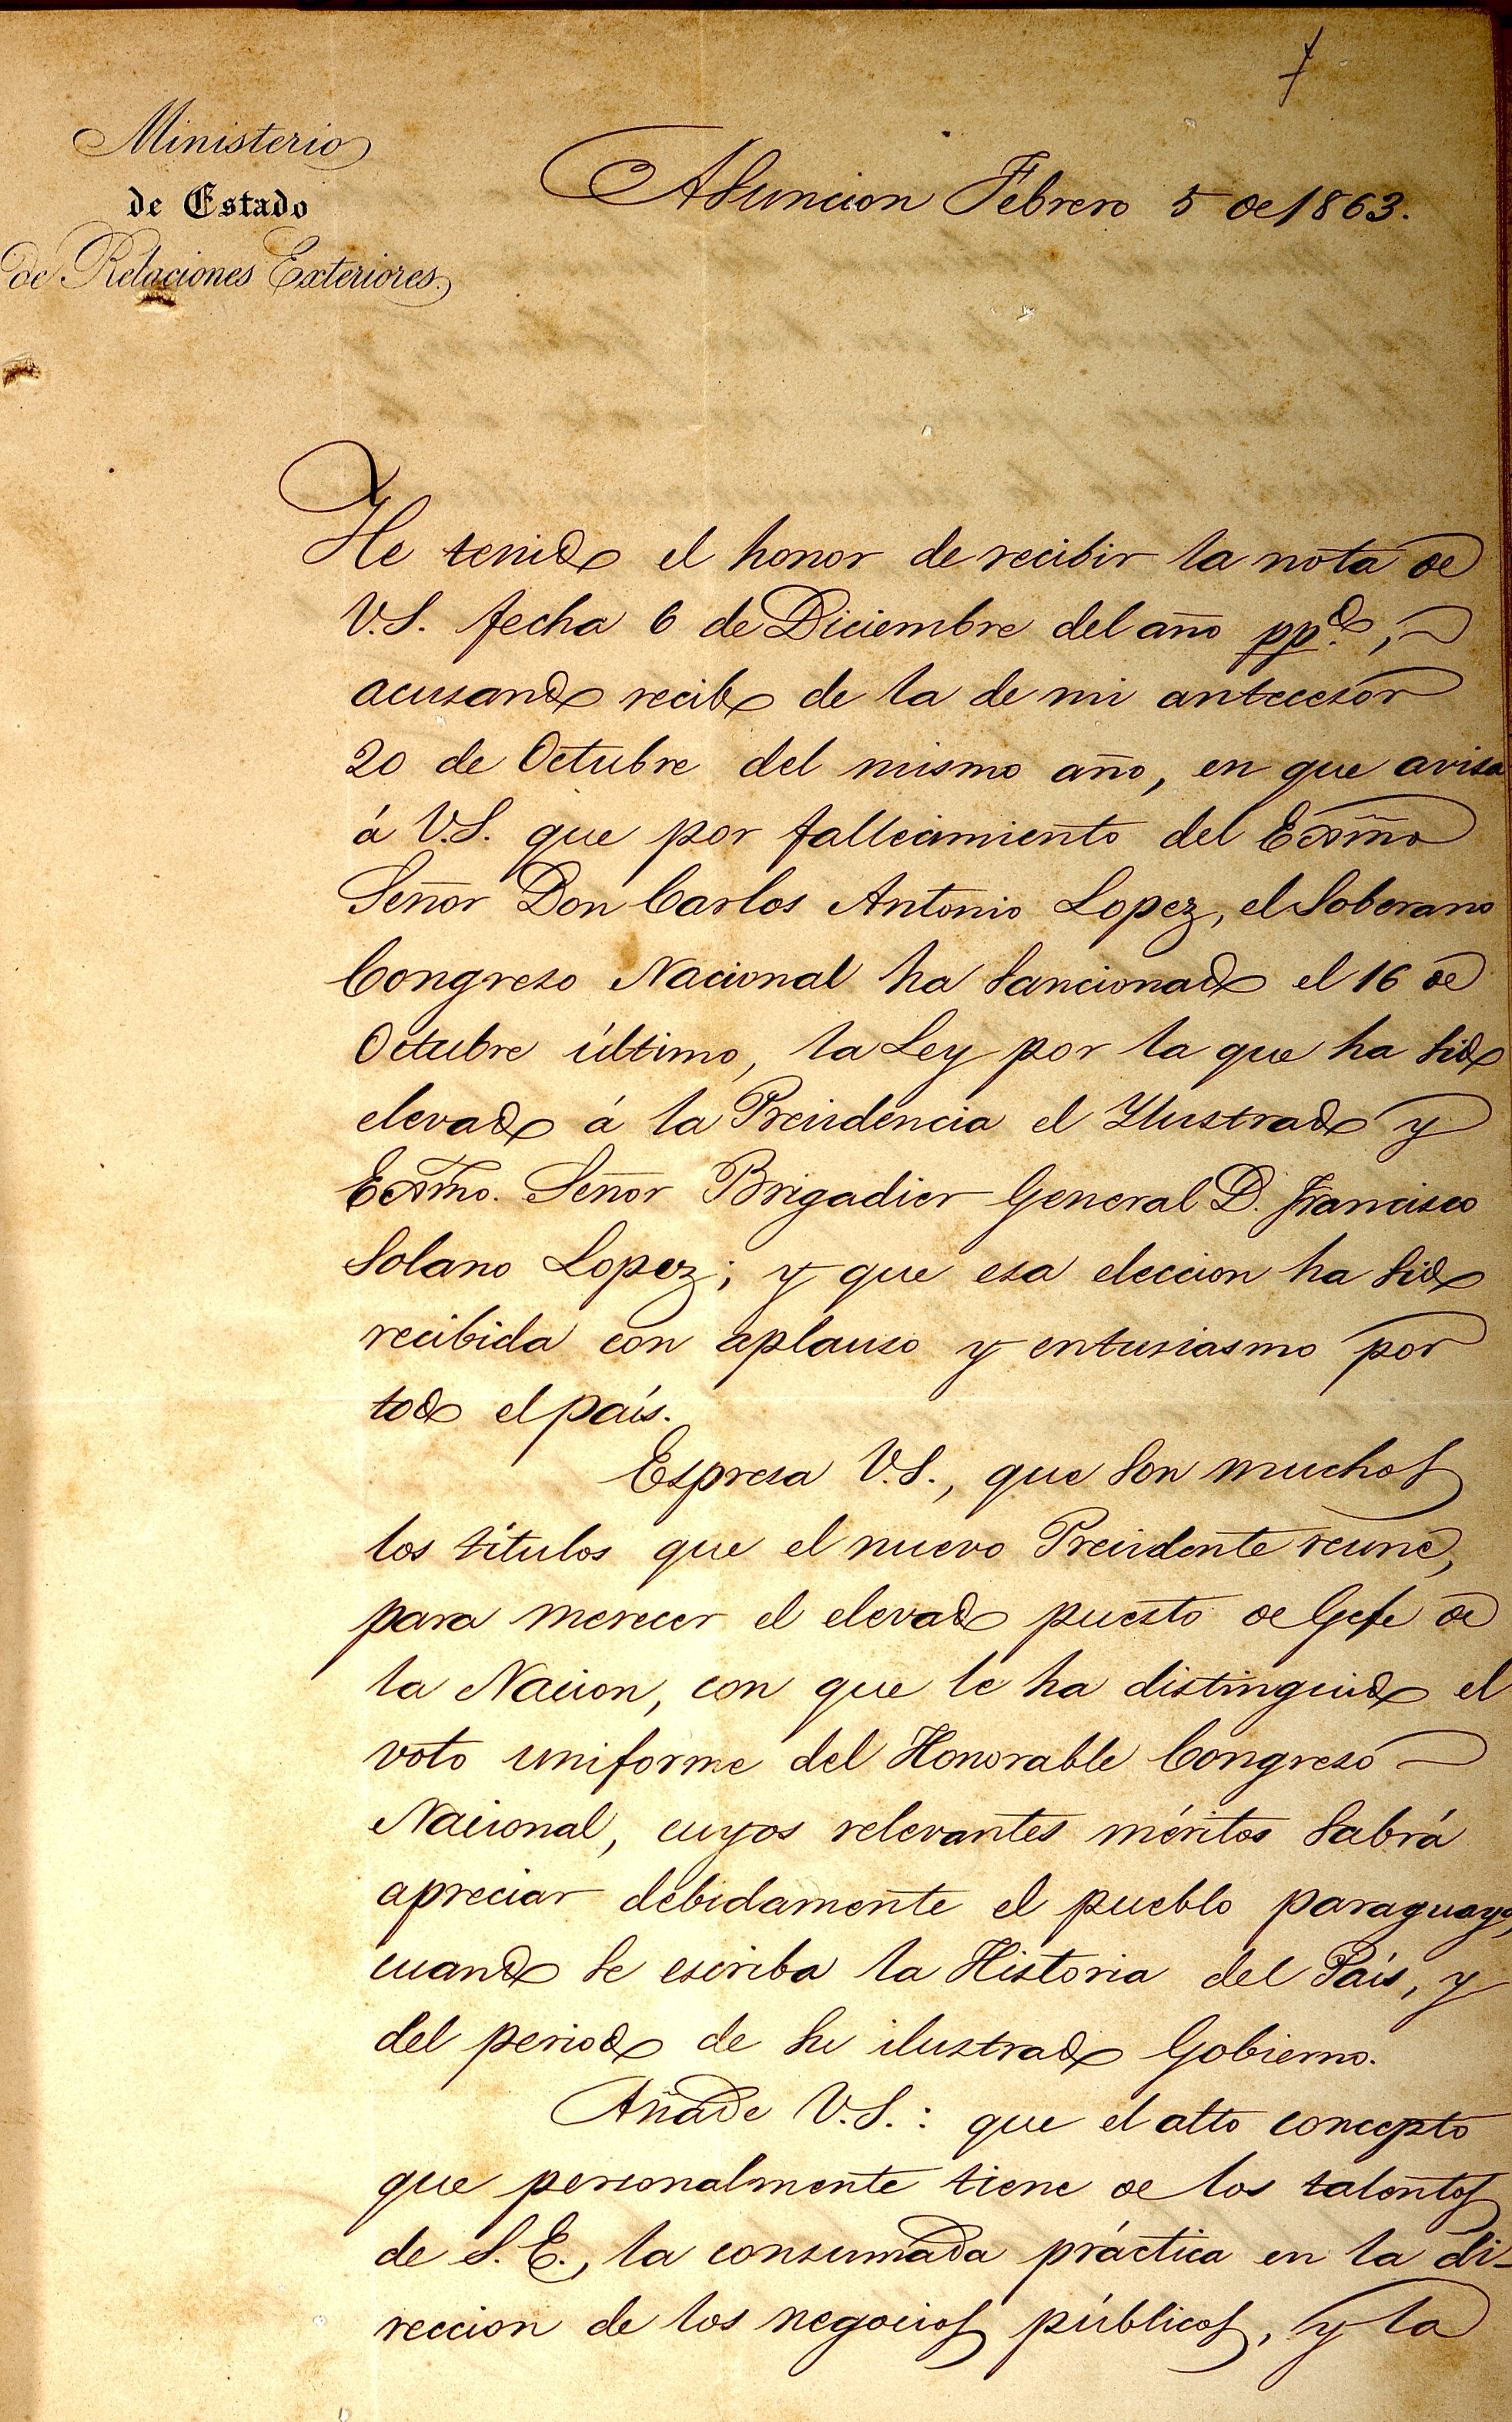 Ministerio
de Estado
de Relaciones Exteriores.
Asuncion Febrero 5 de 1863.
He tenido el honor de recibir la nota de
V.S. fecha 6 de Diciembre del año ppdo.,
acusando recibo de la de mi antecesor
20 de Octubre del mismo año, en que avisa
á V.S. que por fallecimiento del Exmo
Señor Don Carlos Antonio Lopez, el Soberano
Congreso Nacional ha sancionado el 16 de
Octubre último, la Ley por la que ha sido
elevado á la Presidencia el Ylustrado y
Exmo. Señor Brigadier General D. Francisco
Solano Lopez; y que esa eleccion ha sido
recibida con aplauso y entusiasmo por
todo el país.
Espresa V.S., que son muchos
los títulos que el nuevo Presidente reune,
para merecer el elevado puesto de Gefe de
la Nacion, con que le ha distinguido el
voto uniforme del Honorable Congreso
Nacional, cuyos relevantes méritos sabrá
apreciar debidamente el pueblo paraguayo,
cuando se escriba la Historia del País, y
del periodo de su ilustrado Gobierno.
Añade V.S.: que el alto concepto
que personalmente tiene de los talentos
de S.E., la consumada práctica en la di-
reccion de los negocios públicos, y la